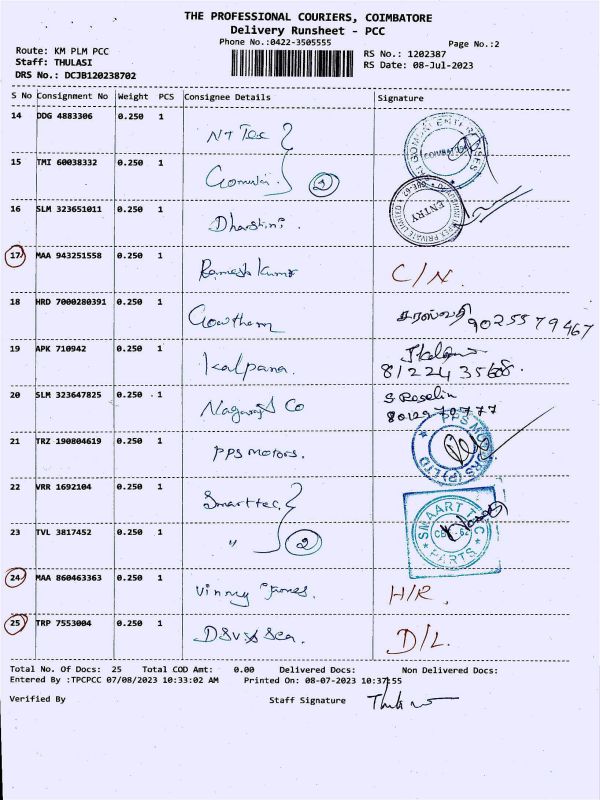 THE PROFESSIONAL COURIERS, COIMBATORE
Delivery Runsheet - PCC
Phone No.:0422-3505555
Page No.:2
Route: KM PLM PCC
RS No.: 1202387
Staff: THULASI
RS Date: 08-Jul-2023
DRS No.: DCJB120238702
S No Consignment No Weight PCS Consignee Details Signature
14 DDG 4883306 0.250 1 NT Tec
15 TMI 60038332 0.250 1 Gomathi 2
COIMBATORE
16 SLM 323651011 0.250 1 Dharshini.
ENTRY
17 MAA 943251558 0.250 1 Ramesh Kumar C/N.
18 HRD 7000280391 0.250 1 Gowtham சரஸ்வதி 9025579467
19 APK 710942 0.250 1 Kalpana. 8122435668.
20 SLM 323647825 0.250 1 Nagaraj Co S Roselin
21 TRZ 190804619 0.250 1 PPS MOTORS.
PPS MOTORS (P) LTD
22 VRR 1692104 0.250 1 Smarttec
23 TVL 3817452 0.250 1 " 2
SMAART TEC PARTS
24 MAA 860463363 0.250 1 H/R.
25 TRP 7553004 0.250 1 D/L.
Total No. Of Docs: 25 Total COD Amt: 0.00 Delivered Docs: Non Delivered Docs:
Entered By :TPCPCC 07/08/2023 10:33:02 AM Printed On: 08-07-2023 10:37:55
Verified By Staff Signature